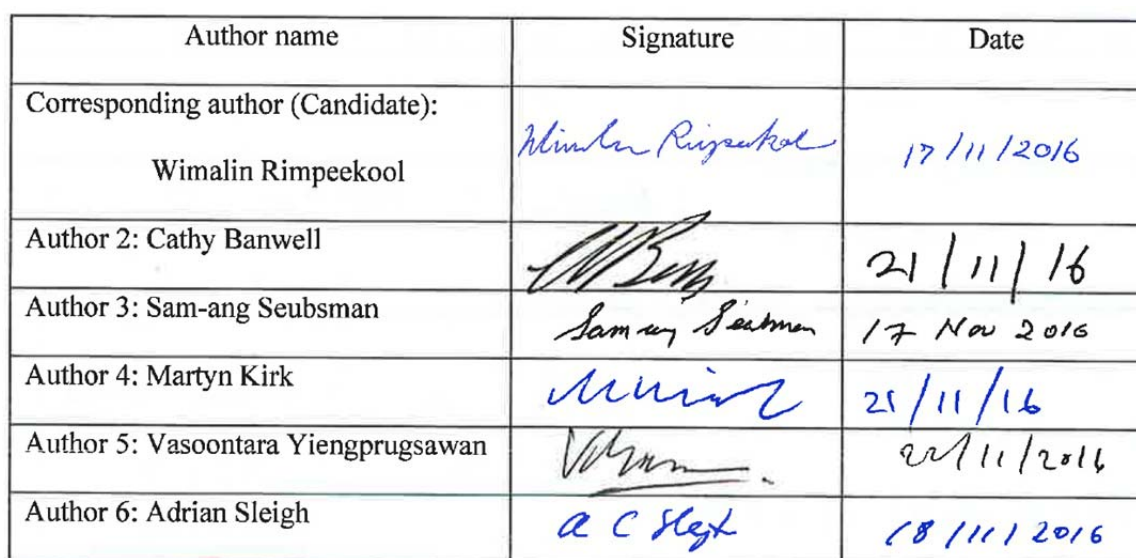 Author name Signature Date
Corresponding author (Candidate):
Wimalin Rimpeekool Wimalin Rimpeekool 17/11/2016
Author 2: Cathy Banwell 21/11/16
Author 3: Sam-ang Seubsman Sam-ang Seubsman 17 Nov 2016
Author 4: Martyn Kirk 21/11/16
Author 5: Vasoontara Yiengprugsawan 22/11/2016
Author 6: Adrian Sleigh A C Sleigh 18/11/2016